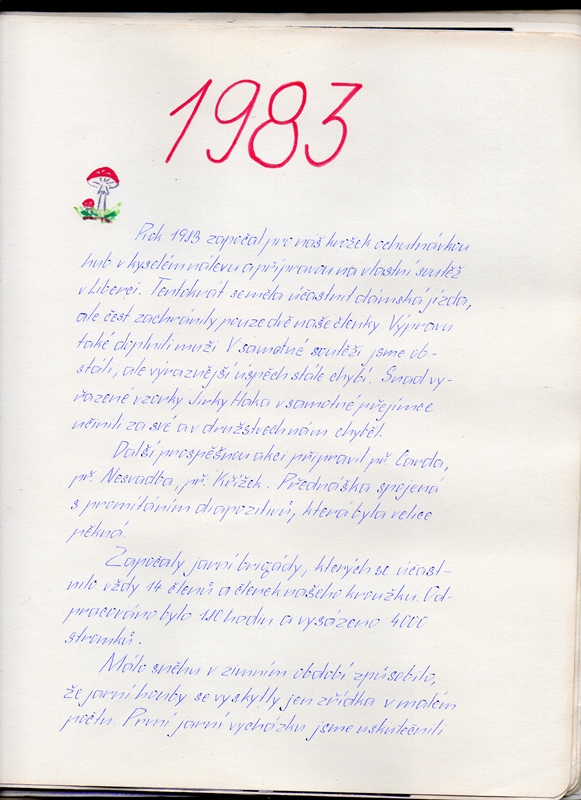 1983
Rok 1983 započal pro náš krožek ochutnávkou
hub v kyselém nálevu a přípravou na vlastní soutěž
v Liberci. Tentokrát se měla účastnit dámská jízda,
ale čest zachránily pouze dvě naše členky. Výpravu
také doplnili muži. V samotné soutěži jsme ob-
stáli, ale výraznější úspěch stále chybí. Snad vy-
řazené vzorky Jirky Haka v samotné přejímce
učinili za své a v družstvech nám chyběl.
Další prospěšnou akci připravil př. Čarda,
př. Nesvadba, př. Křížek. Přednáška spojená
s promítáním diapozitivů, která byla velice
pěkná.
Započaly jarní brigády, kterých se účast-
nilo vždy 14 členů a členek našeho kroužku. Od-
pracováno bylo hodin a vysázeno 4000
stromků.
Málo sněhu v zimním období způsobilo,
že jarní houby se vyskytly jen zřídka v malém
počtu. První jarní vycházku jsme uskutečnili